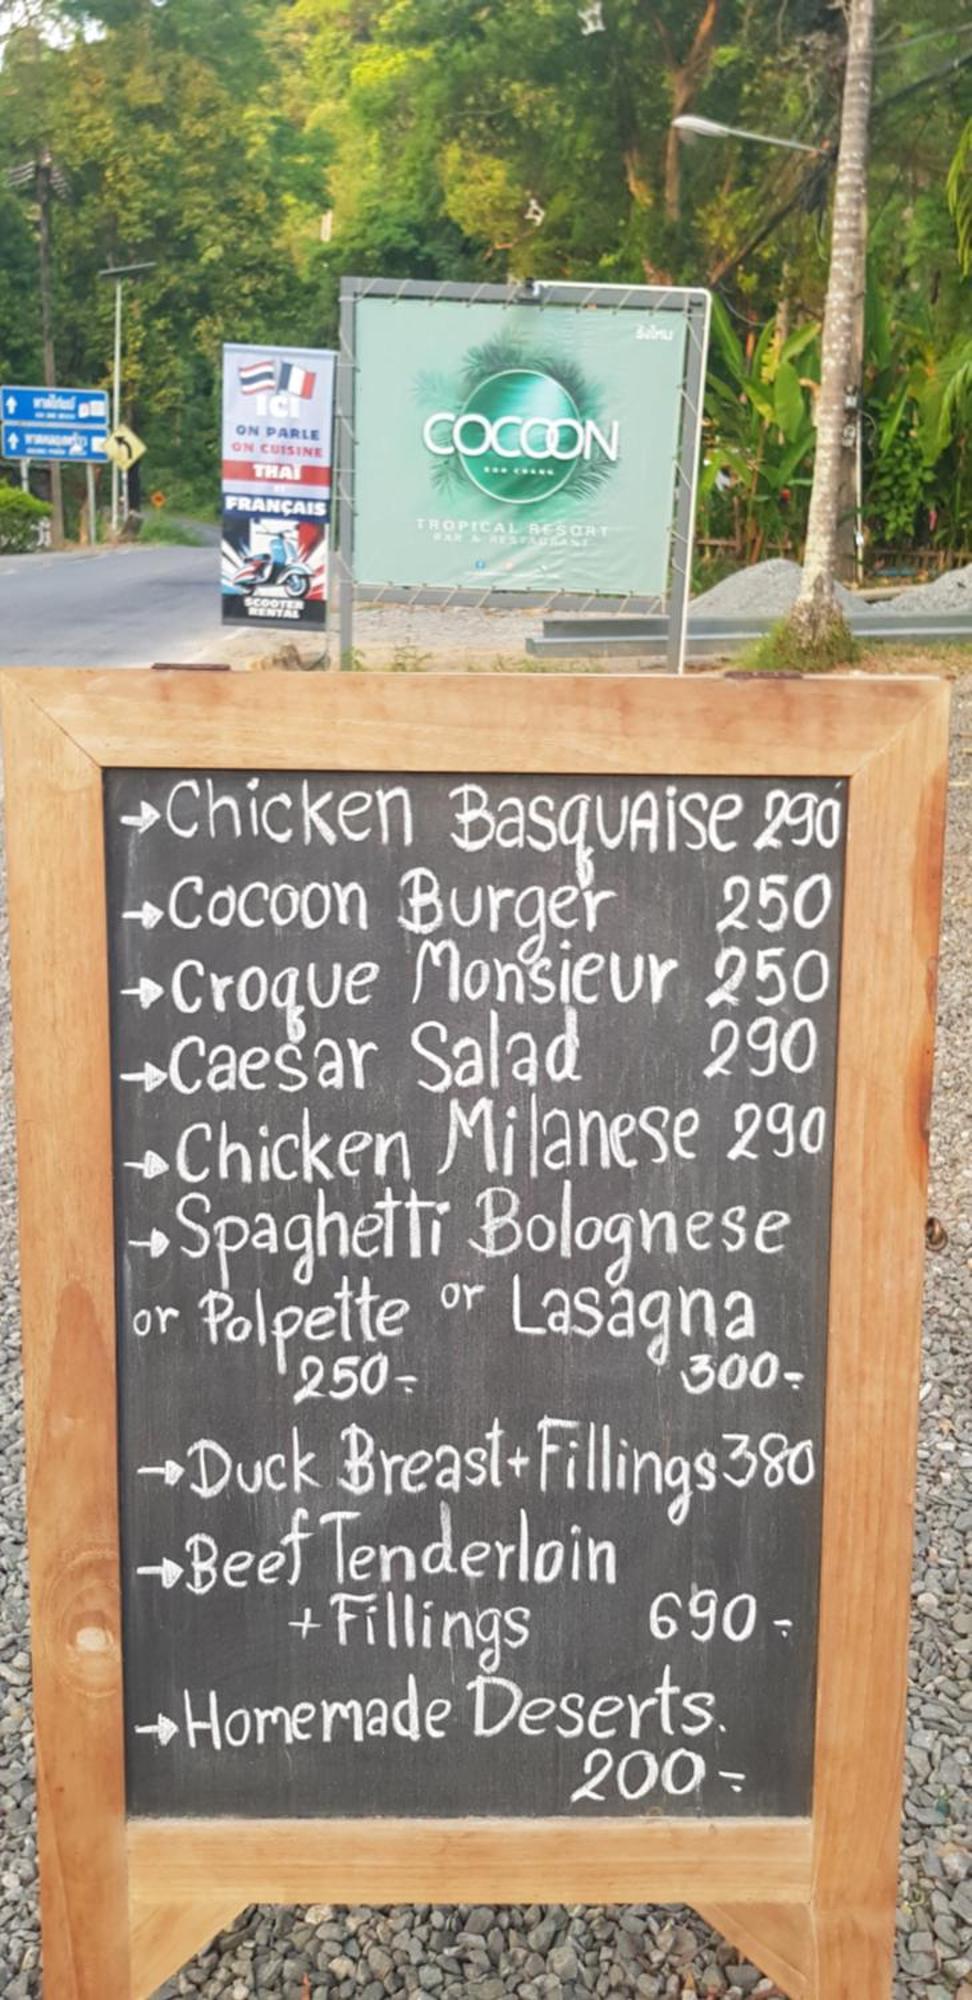 รังไหม
COCOON
KOH CHANG
TROPICAL RESORT
BAR & RESTAURANT
ICI
ON PARLE
ON CUISINE
THAÏ
ET
FRANÇAIS
SCOOTER
RENTAL
→Chicken Basquaise 290
→Cocoon Burger 250
→Croque Monsieur 250
→Caesar Salad 290
→Chicken Milanese 290
→Spaghetti Bolognese
or Polpette or Lasagna
250.- 300.-
→Duck Breast+Fillings 380
→Beef Tenderloin
+Fillings 690.-
→Homemade Deserts.
200.-